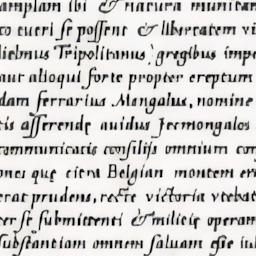 amplam ibi & natura munitam
to tueri se possent & libertatem vi
liebmus Tripolitanus, gregibus impe
aut alioqui forte propter ereptum
dam ferrarius Mongalus, nomine
tis asserende auidus Jecmongalos
communicatis consilijs omnium con
ones que citra Belgian montem er
erat prudens, recte victoria vtebat
ter se submittenti & militie operam
substantiam omnem saluam esse iub